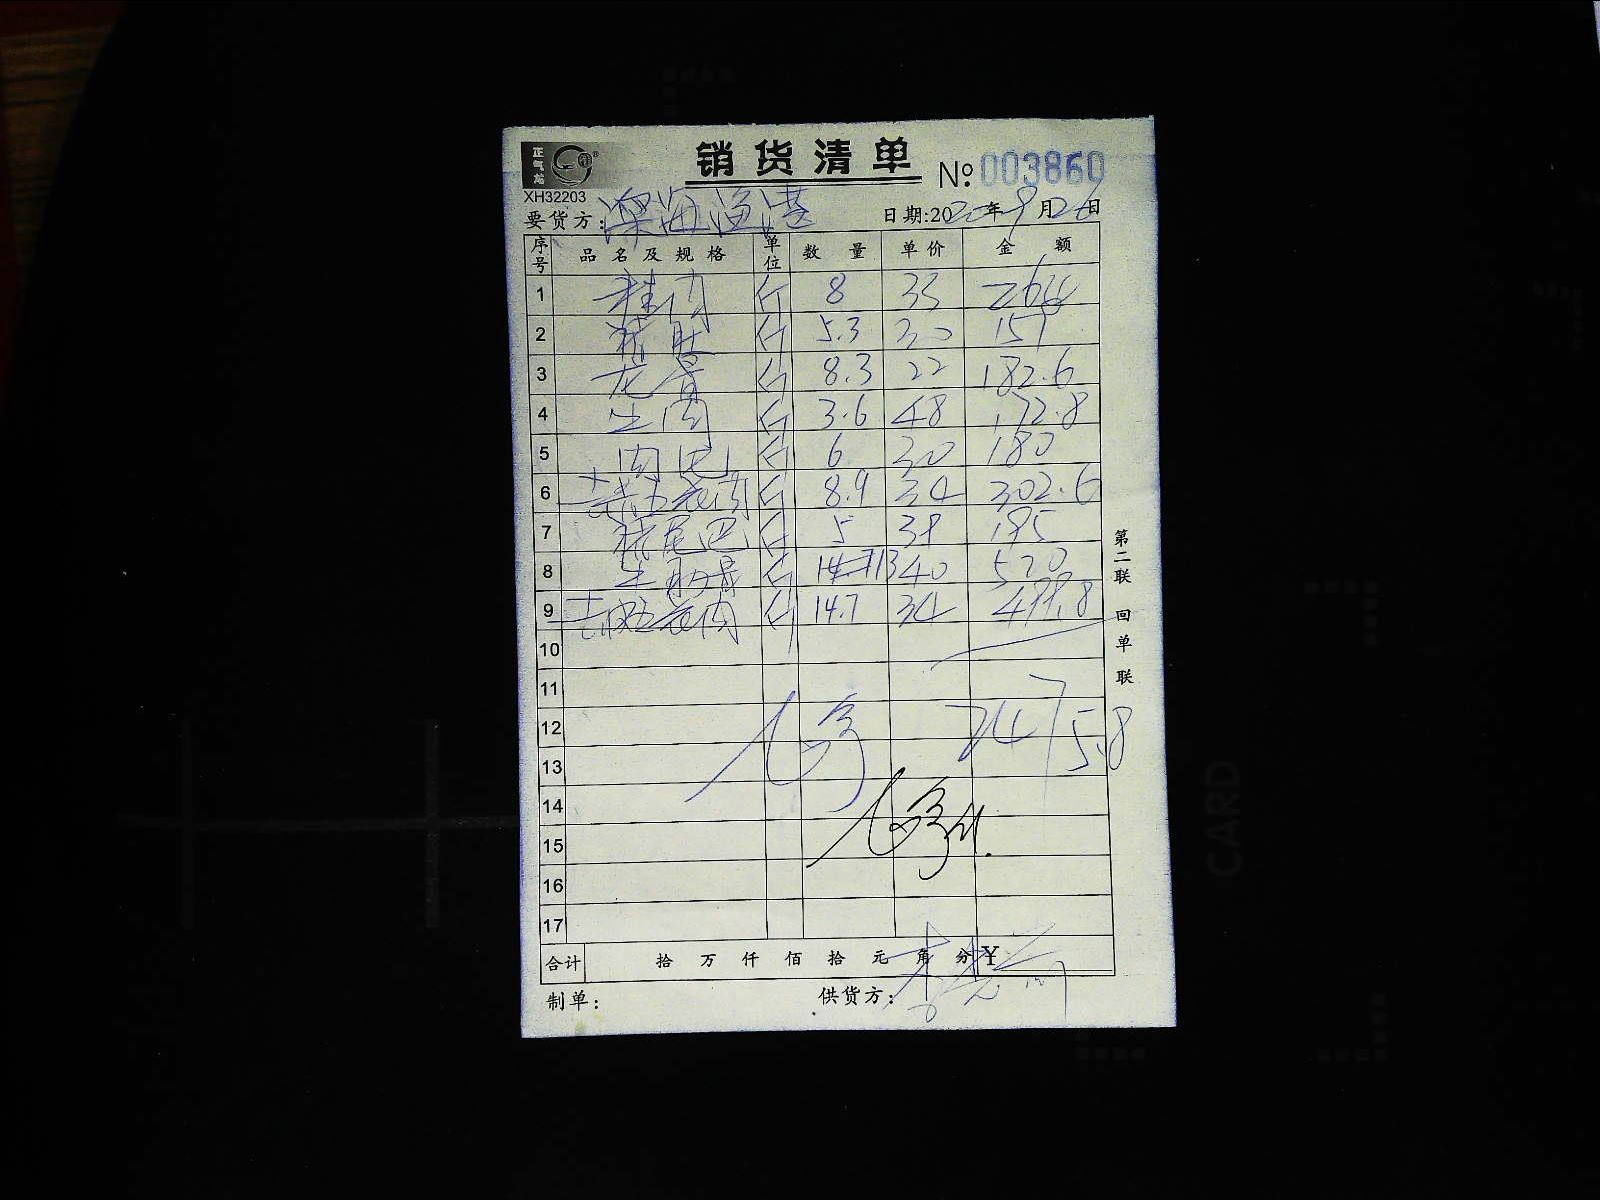 正气龙
销货清单
№ 003860
XH32203
要货方: 深海渔港 日期:2020年9月26日
序号 品名及规格 单位 数量 单价 金额
1 斤 8 33 264
2 猪肚 斤 5.3 30 159
3 龙骨 斤 8.3 22 182.6
4 牛肉 斤 3.6 48 172.8
5 肉 斤 6 30 180
6 土 五花肉 斤 8.9 34 302.6
7 猪尾巴 斤 5 39 195
8 斤 13 40 520
9 土 五花肉 斤 14.7 34 499.8
10
11
12 2475.8
13
14
15
16
17
合计 拾 万 仟 佰 拾 元 角 分 ¥
制单: 供货方:
第二联 回单联
CARD